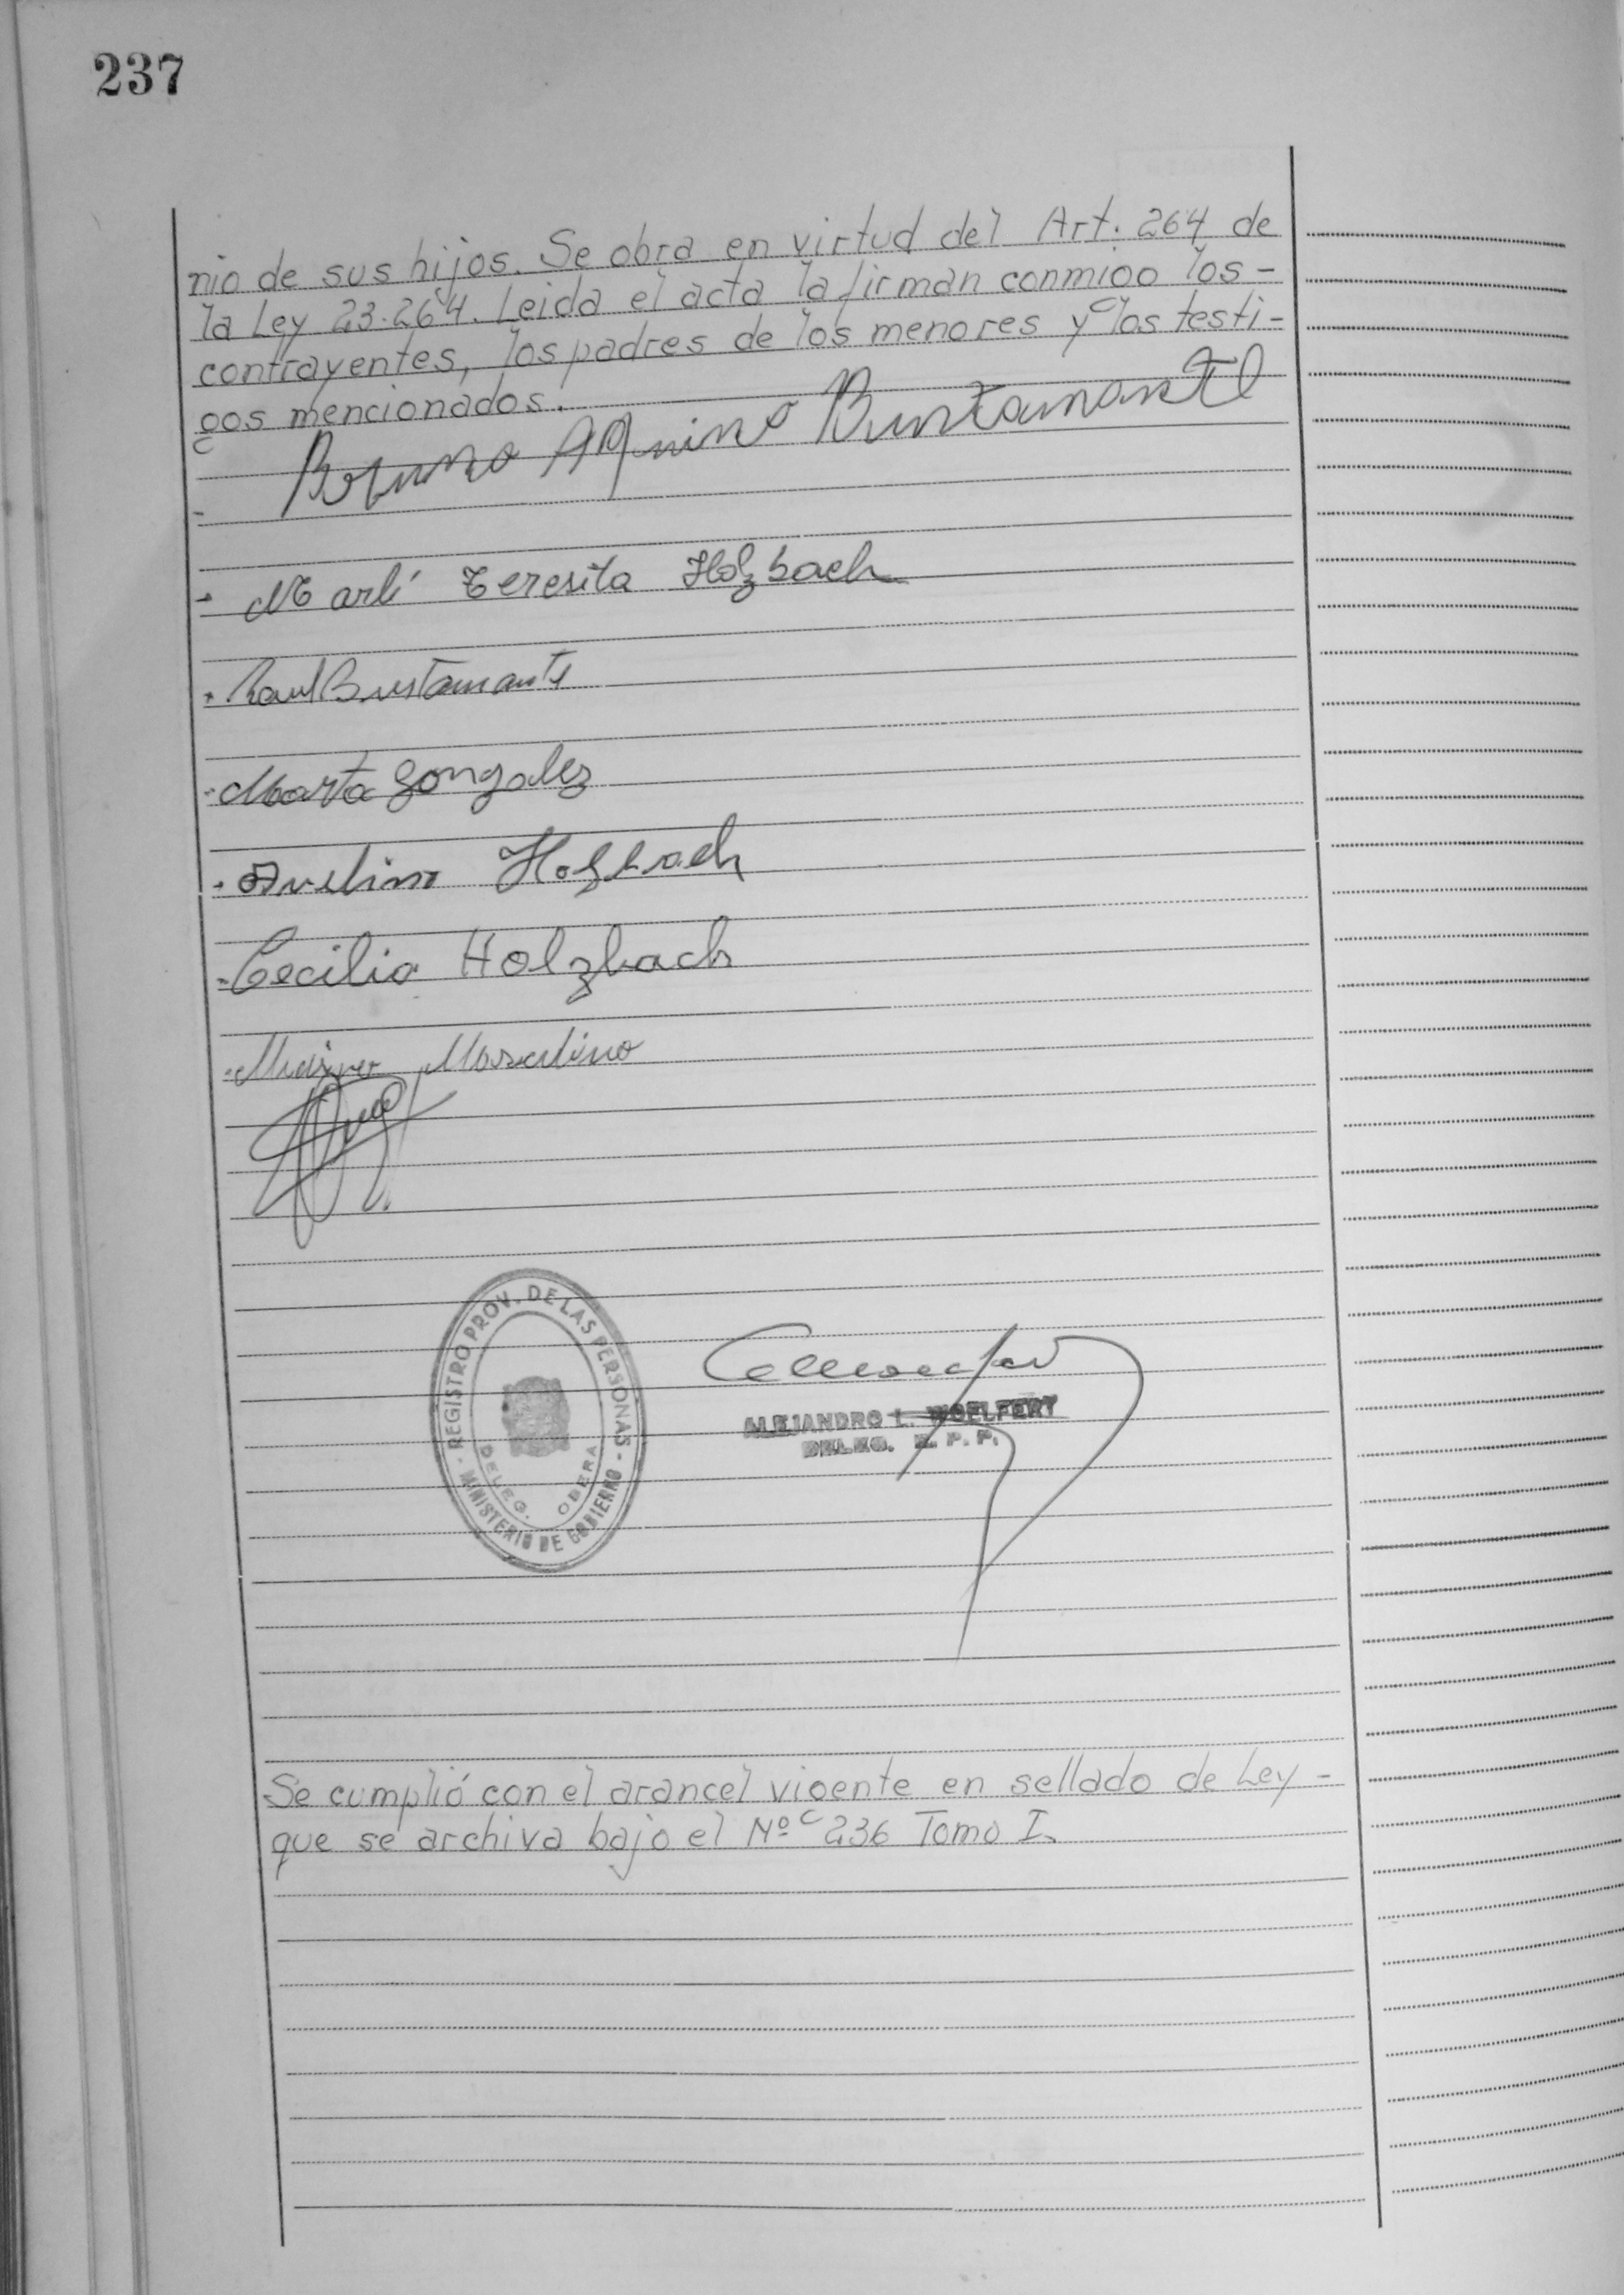 237
nio de sus hijos. Se obra en virtud del Art. 264 de
la Ley 23.264. Leida el acta la firman conmigo los -
contrayentes, los padres de los menores y los testi-
gos mencionados.
Bruno Aquino Bustamante
- Marlí Teresita Holzbach
- Raul Bustamante
- Marta Gonzalez
- Avelino Holzbach
- Cecilia Holzbach
Marcelino
REGISTRO PROV. DE LAS PERSONAS - MINISTERIO DE GOBIERNO -
DELEG. OBERA
ALEJANDRO L. WOELFERT
DELEG. R. P. P.
Se cumplió con el arancel vigente en sellado de Ley -
que se archiva bajo el Nº 236 Tomo I.